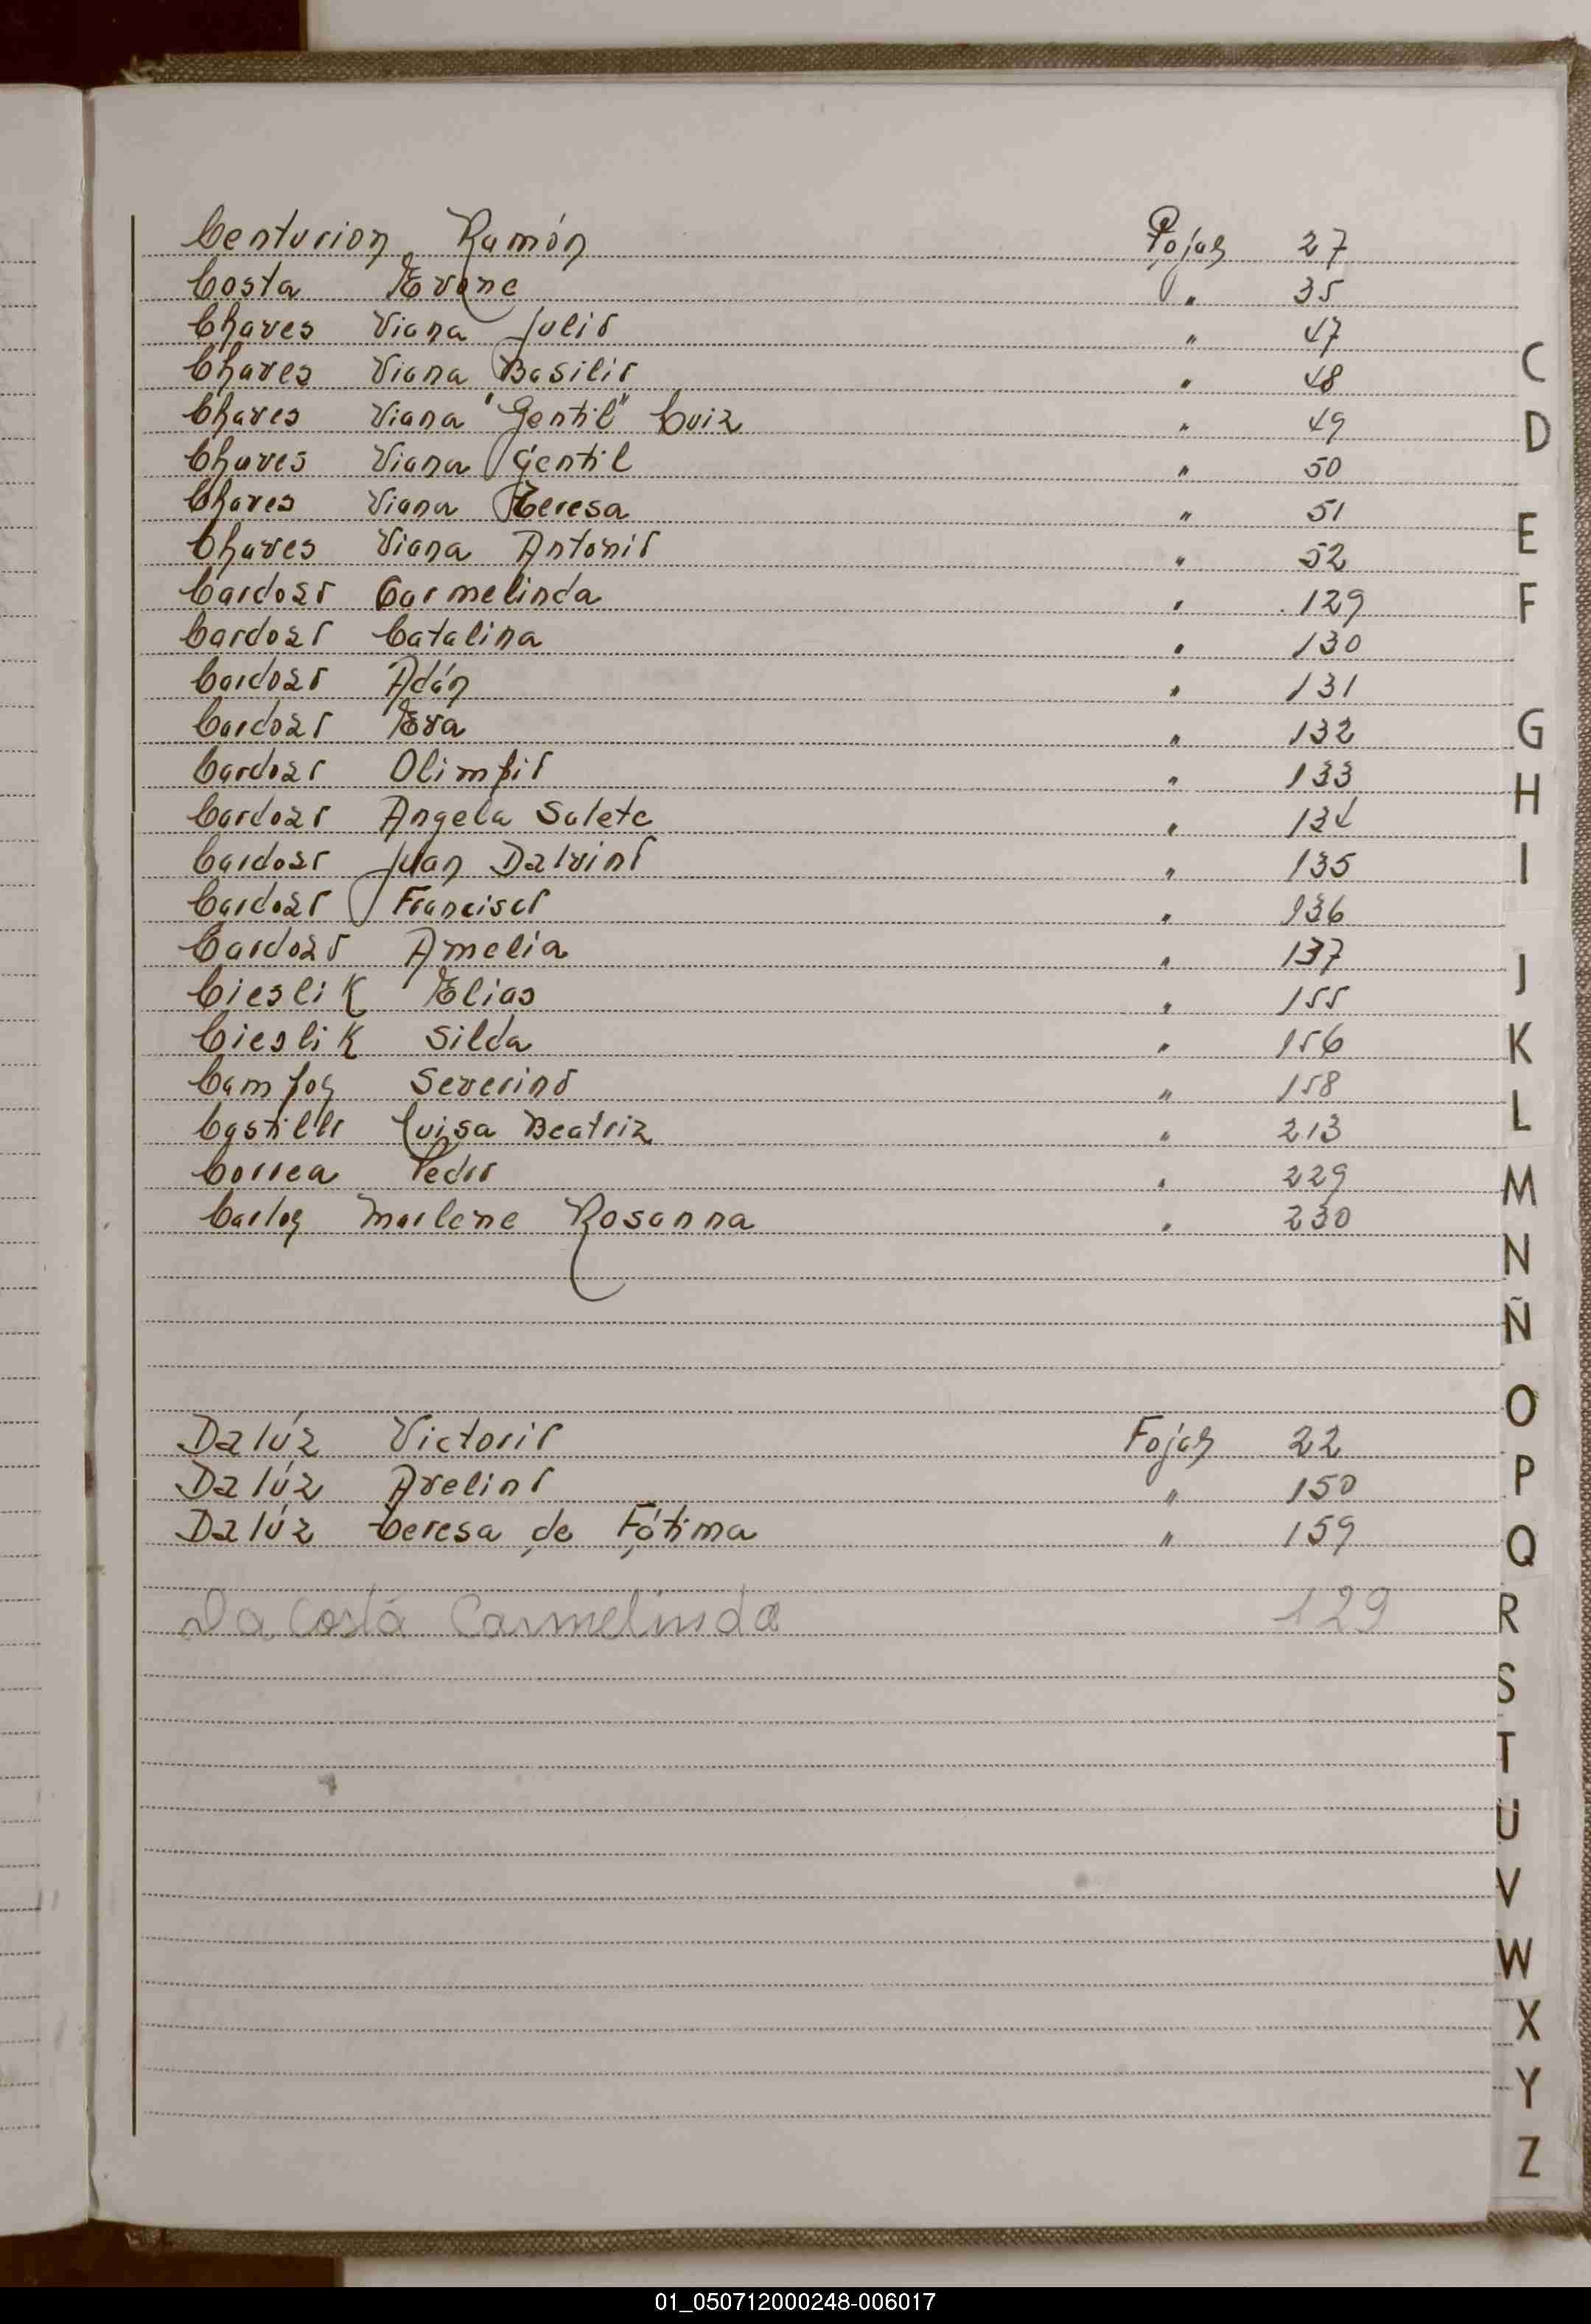 Centurion Ramón Fojas 27
Costa Evane " 35
Chaves Viana Julio " 47
Chaves Viana Basilio " 48
Chaves Viana "Gentil" Luiz " 49
Chaves Viana Gentil " 50
Chaves Viana Teresa " 51
Chaves Viana Antonio " 52
Cardozo Carmelinda " 129
Cardozo Catalina " 130
Cardozo Adán " 131
Cardozo Eva " 132
Cardozo Olimpio " 133
Cardozo Angela Salete " 134
Cardozo Juan Dalvino " 135
Cardozo Francisco " 136
Cardozo Amelia " 137
Cieslik Elias " 155
Cieslik Silda " 156
Campos Severino " 158
Castillo Luisa Beatriz " 213
Correa Pedro " 229
Carlos Marlene Rosanna " 230
Dalúz Victorio Fojas 22
Dalúz Avelino " 150
Dalúz Teresa de Fátima " 159
Da Costa Carmelinda 129
C
D
E
F
G
H
I
J
K
L
M
N
Ñ
O
P
Q
R
S
T
U
V
W
X
Y
Z
01_050712000248-006017